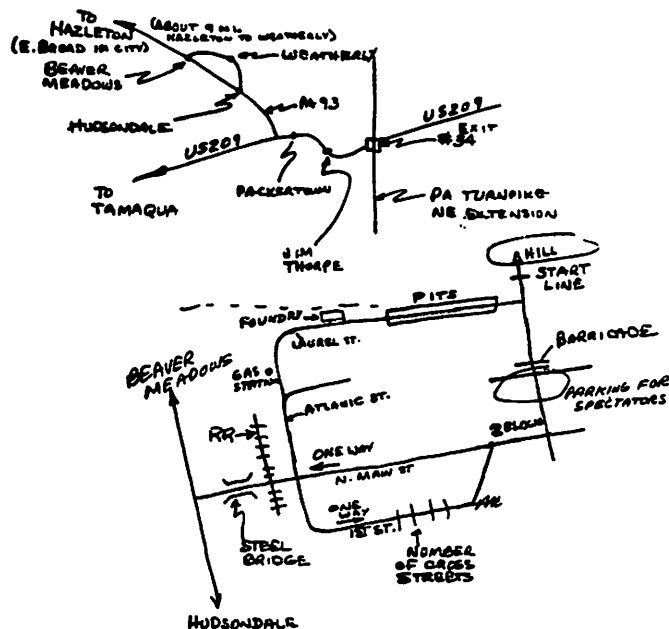 TO
HAZLETON
(E. BROAD IN CITY)
(ABOUT 9 MI.
HAZLETON TO WEATHERLY)
WEATHERLY
BEAVER
MEADOWS
HUDSONDALE
PA 93
US209
US209
EXIT
#34
TO
TAMAQUA
PACKERTOWN
JIM
THORPE
PA TURNPIKE
NE EXTENSION
HILL
START
LINE
PITS
FOUNDRY
LAUREL ST.
BARRICADE
BEAVER
MEADOWS
GAS
STATION
PARKING FOR
SPECTATORS
ATLANIC ST.
RR
ONE WAY
N. MAIN ST
ONE
WAY
1ST ST.
STEEL
BRIDGE
NUMBER
OF CROSS
STREETS
HUDSONDALE